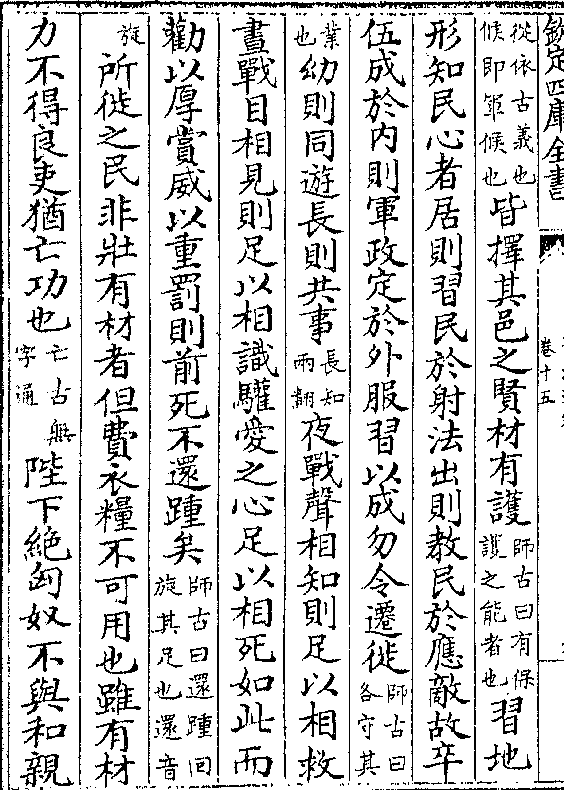 欽定四庫全書
卷十五
從依古義也候即軍候也皆擇其邑之賢材有護師古曰有保護之能者也習地
形知民心者居則習民於射法出則教民於應敵故卒
伍成於内則軍政定於外服習以成勿令遷徙師古曰各守其
業也幼則同遊長則共事長知兩翻夜戰聲相知則足以相救
晝戰目相見則足以相識驩愛之心足以相死如此而
勸以厚賞威以重罰則前死不還踵矣師古曰還踵回旋其足也還音
旋所徙之民非壯有材者但費衣糧不可用也雖有材
力不得良吏猶亡功也亡古無字通陛下絶匈奴不與和親